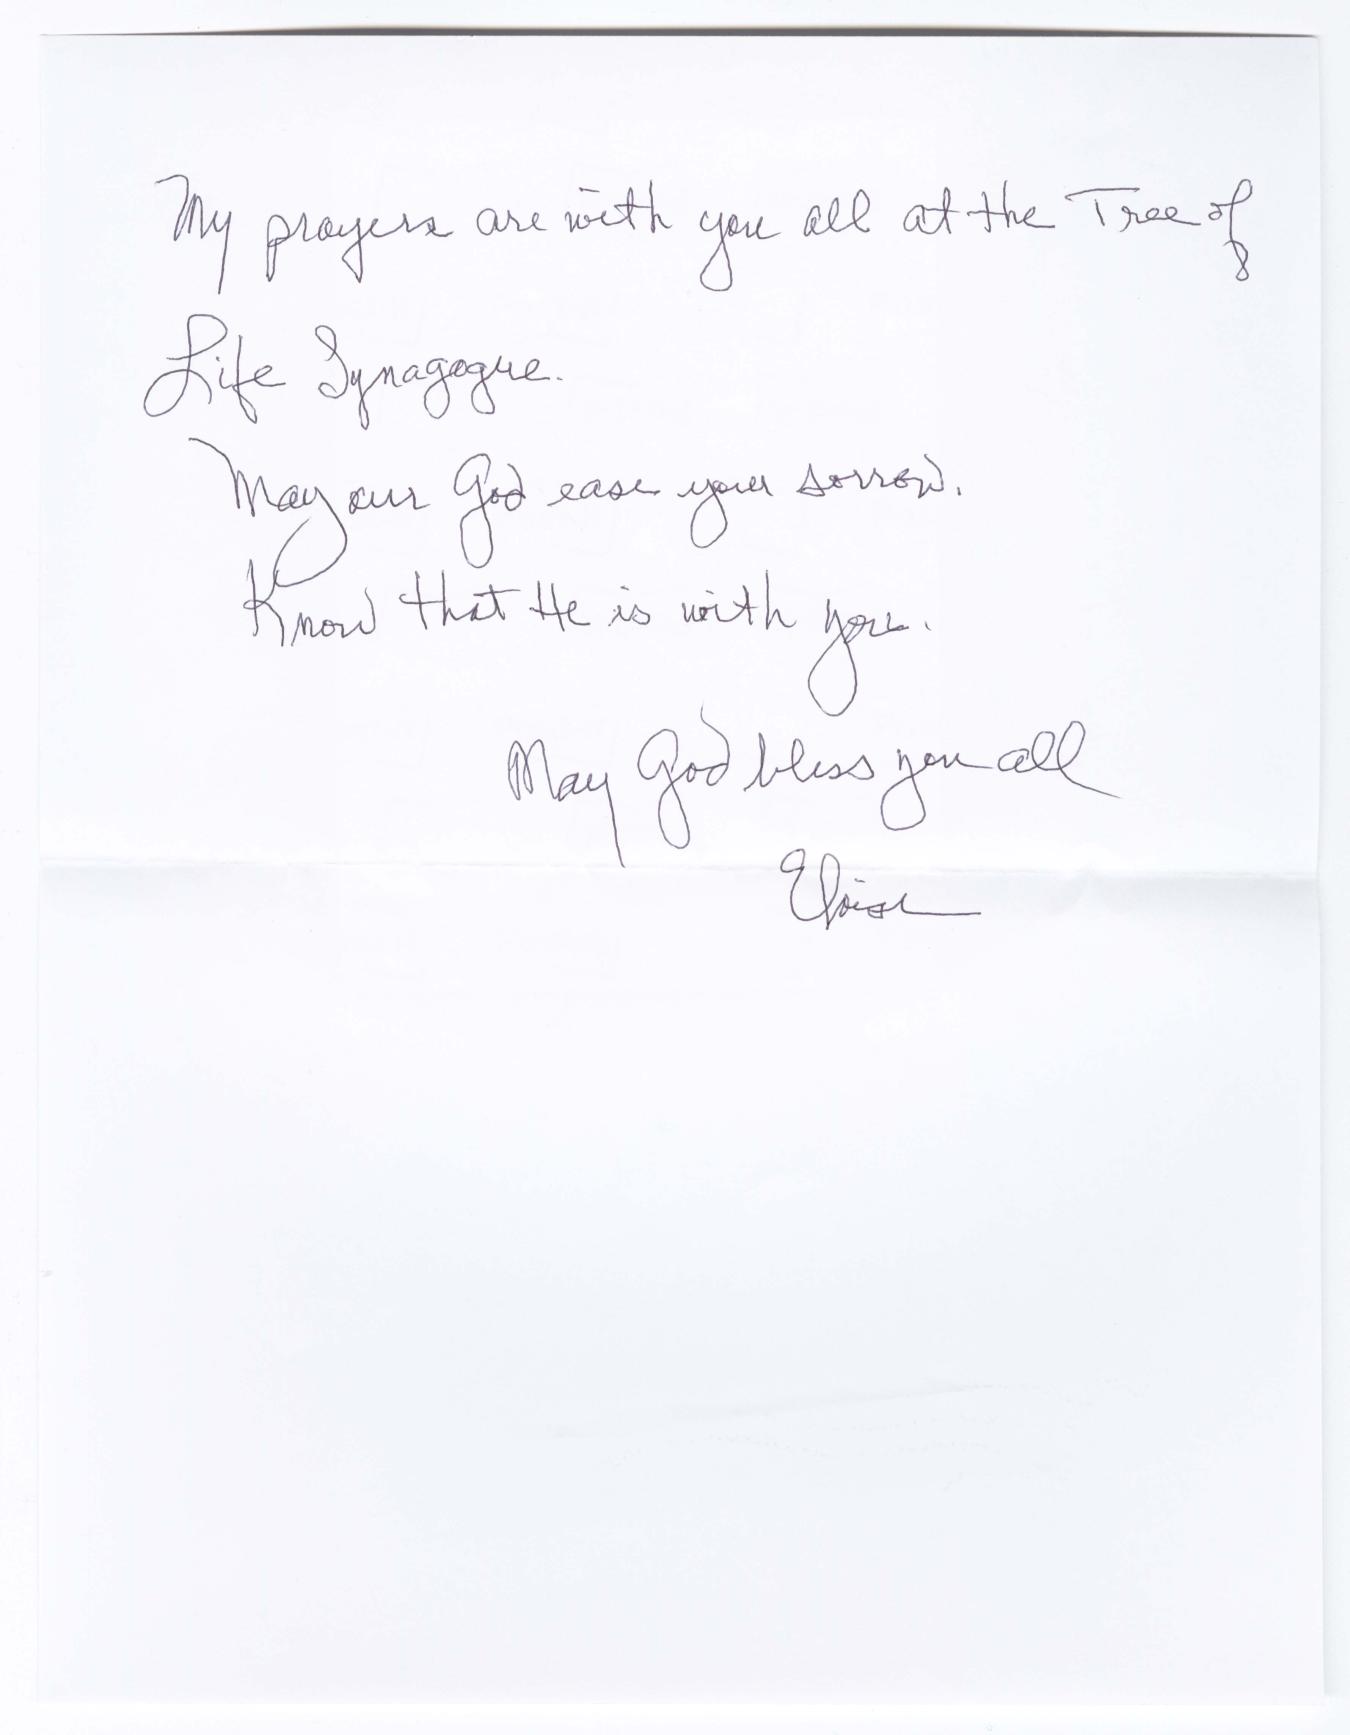 My prayers are with you all at the Tree of
Life Synagogue.
May our God ease your sorrow.
Know that He is with you.
May God bless you all
Eloise